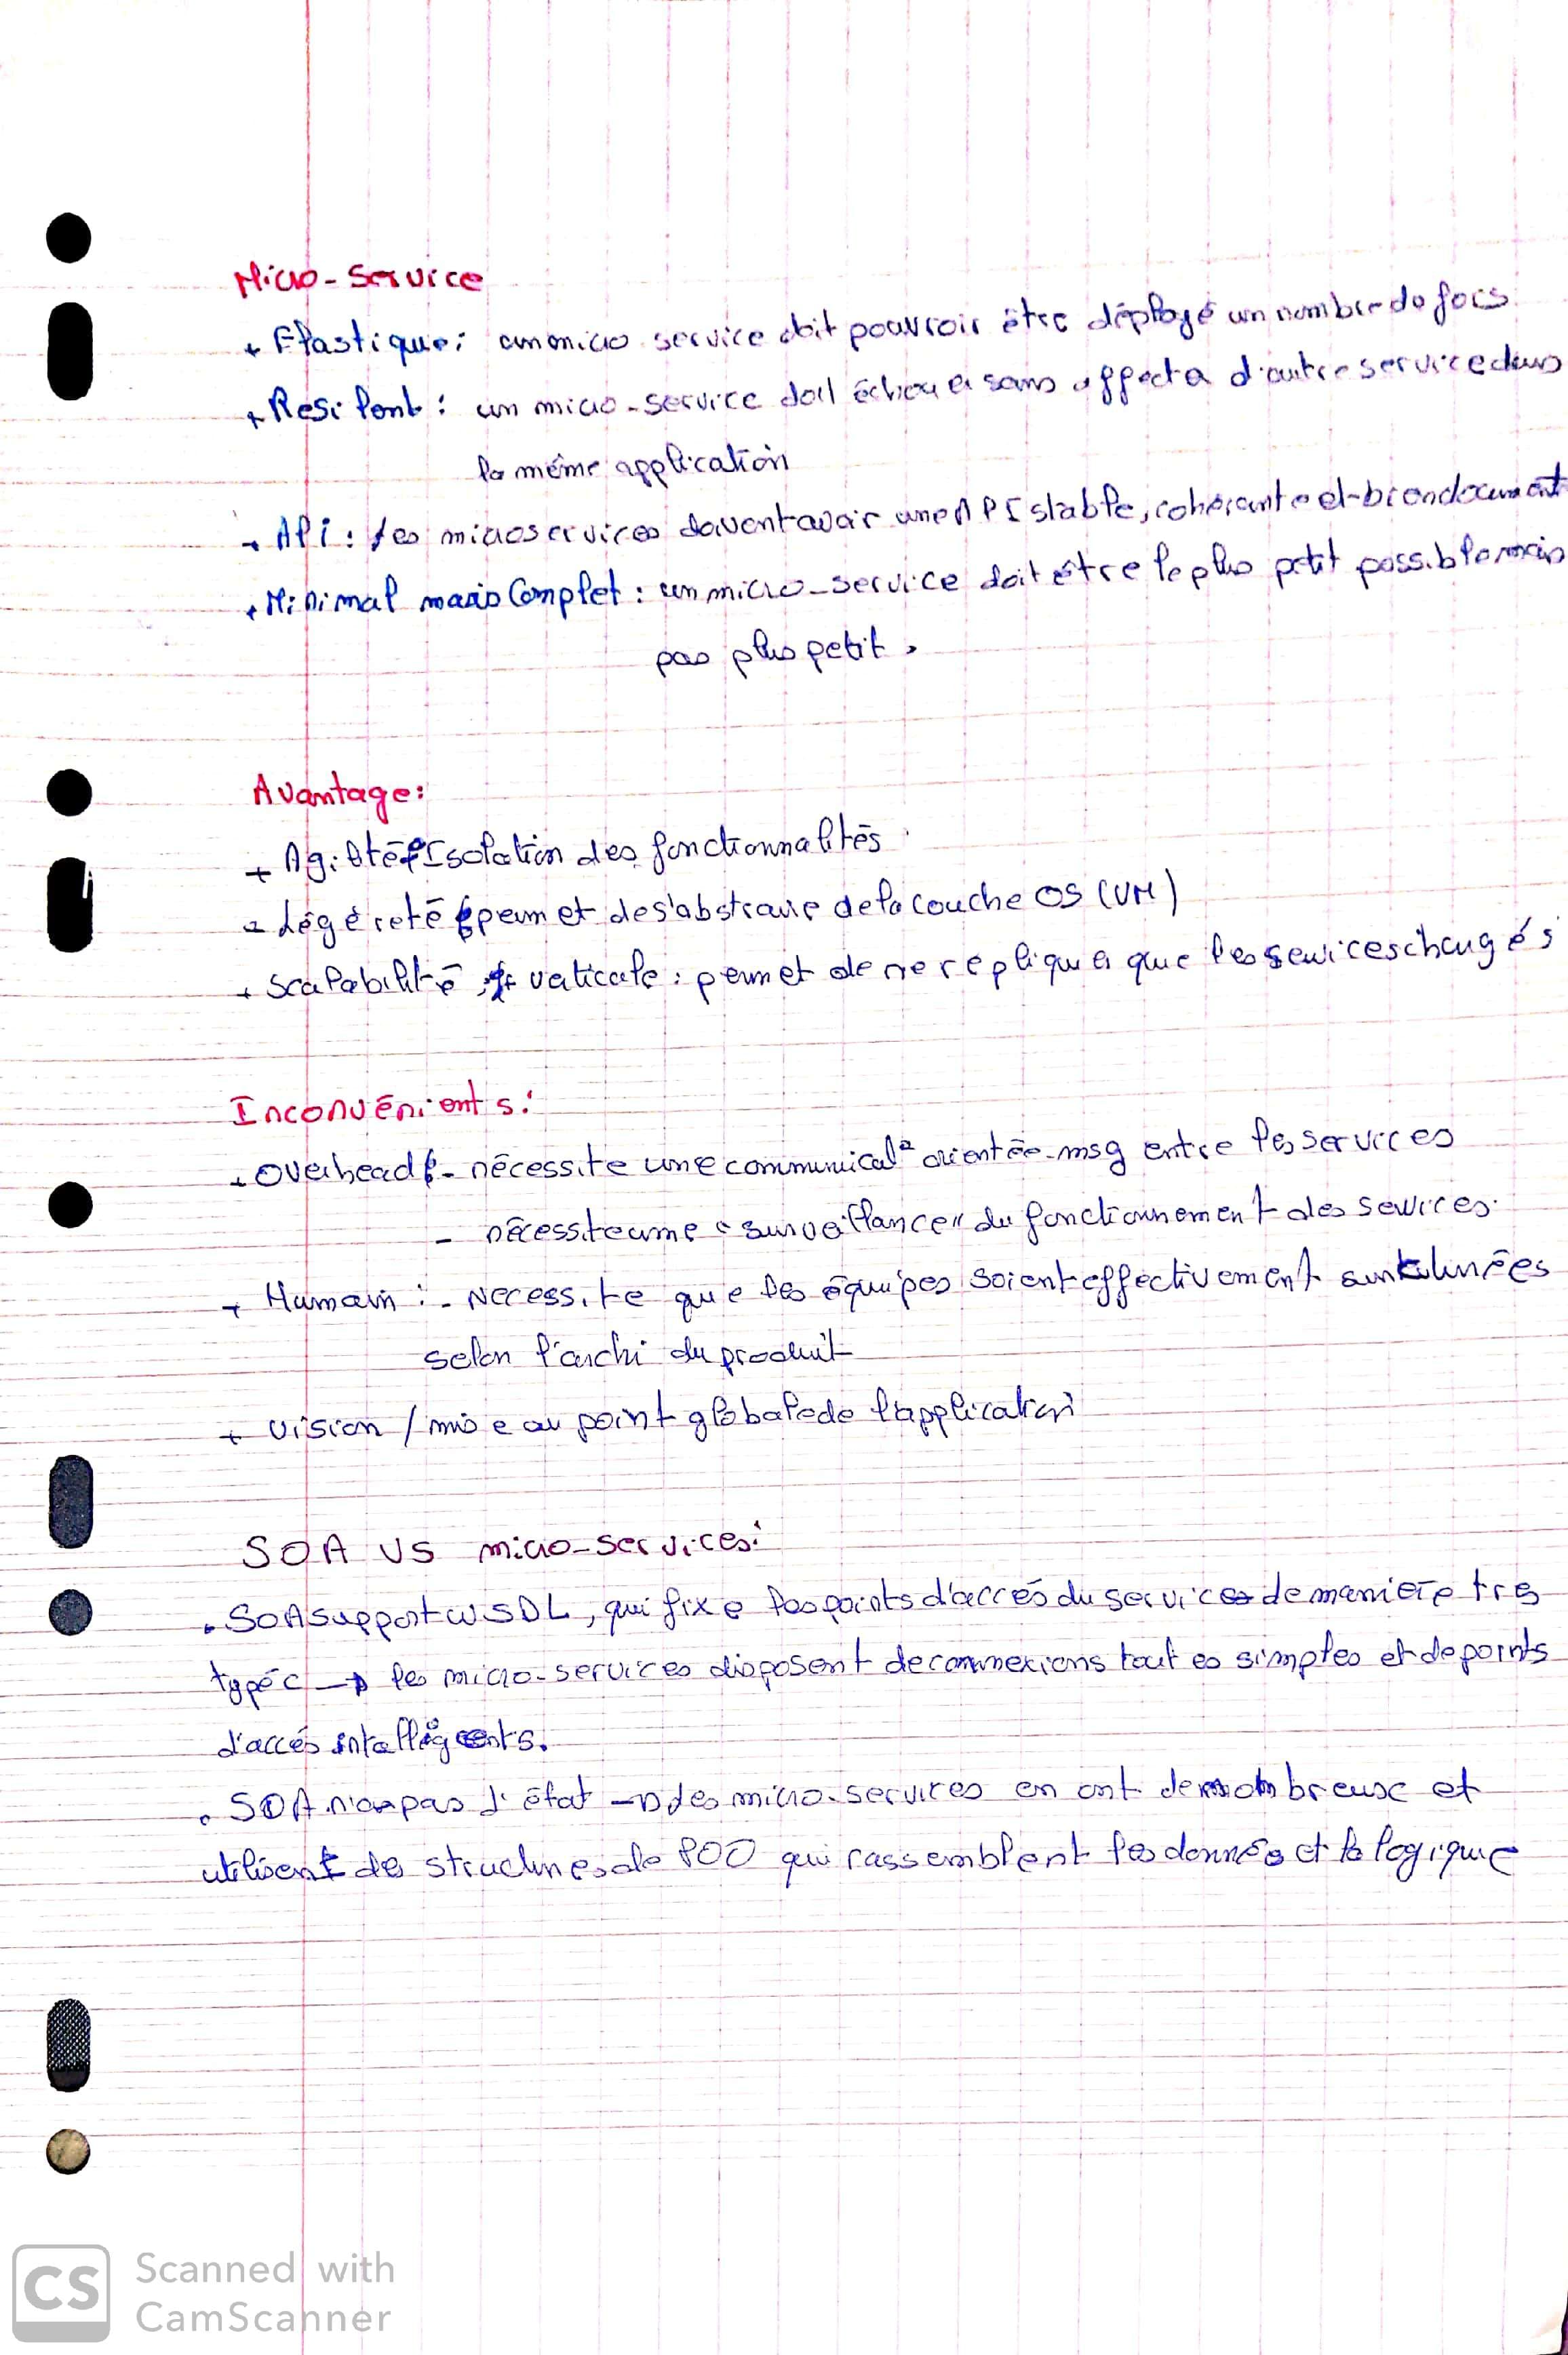 Micro-Service
+ Elastique: un micro service doit pouvroir être déployé un nombre de fois
+ Resilent: un micro-service doit échouer sans affecter d'autre service dans
la même application
+ API: les microservices doivent avoir une API stable, cohérante et bien document
+ Minimal mais Complet: un micro-service doit être le plus petit possible mais
pas plus petit.
Avantage:
+ Agilité: Isolation des fonctionnalités
+ Légéreté: permet de s'abstraire de la couche OS (VM)
+ Scalabilité verticale: permet de ne repliquer que les services chargés
Inconvénients:
+ Overhead: - nécessite une communicat° orientée-msg entre les services
- nécessite une "surveillance" du fonctionnement des services.
+ Humain: - Necessite que les équipes soient effectivement
selon l'archi du produit
+ vision / mise au point globale de l'application
SOA VS micro-services:
. SOA support WSDL, qui fixe les points d'accés du services de maniére trés
typée → les micro-services disposent de connexions toutes simples et de points
d'accés intelligents.
. SOA n'a pas d'état → les micro-services en ont de nombreux et
utilisent des structures de POO qui rassemblent les données et la logique
CS Scanned with
CamScanner